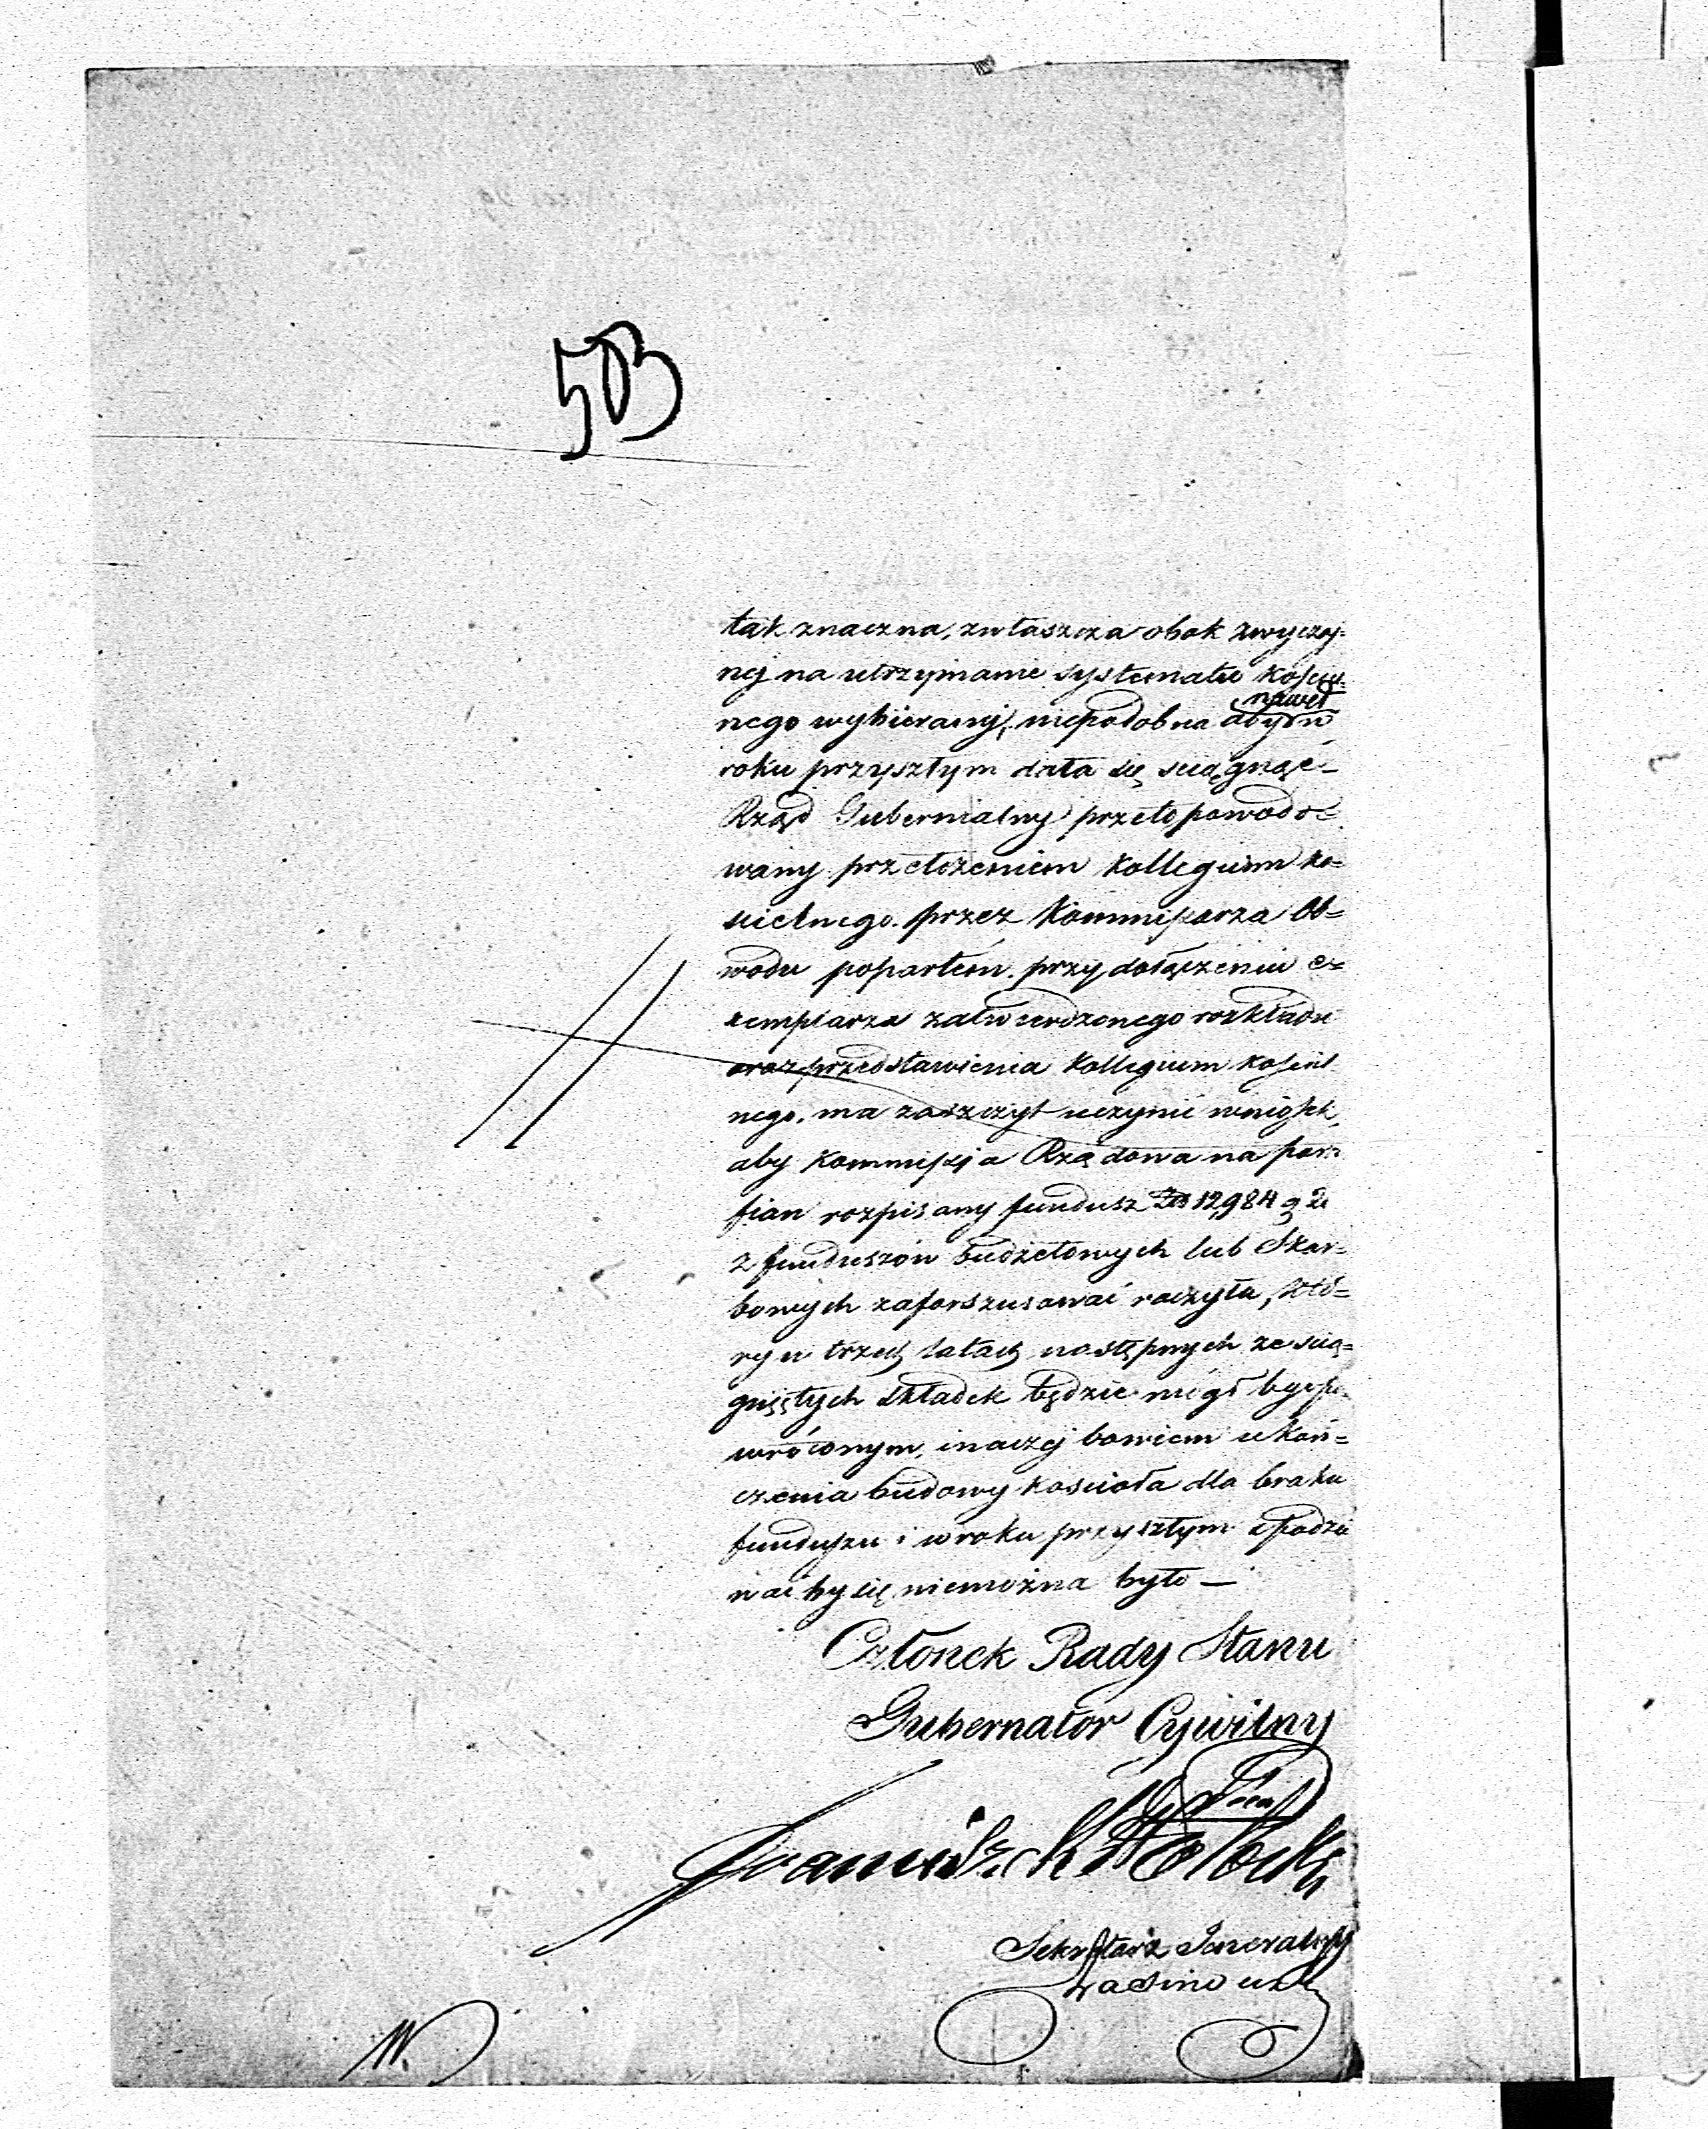 503
tak znaczna, zwłaszcza obok zwyczaj-
nej na utrzymanie systematu kościel-
nawet
nego wybieranej, niepodobna aby w
roku przyszłym dała się sciągnąć –
Rząd Gubernialny przeto powodo-
wany przełożeniem Kollegium ko-
scielnego przez Kommissarza Ob-
wodu popartem, przy dołączeniu ex-
emplarza zatwierdzonego rozkładu
oraz przedstawienia Kollegium kościel
nego, ma zaszczyt uczynić wniosek,
aby Kommissja Rządowa na para
fian rozpisany fundusz Zł 12,984 g 2
z funduszów budżetowych lub Skar-
bowych zaforszusować raczyła, któ-
ry w trzech latach następnych ze scią-
gniętych składek będzie mógł być po-
wróconym, inaczej bowiem ukoń-
czenia budowy kościoła dla braku
funduszu i w roku przyszłym spodzie
wać by się niemożna było —
Członek Rady Stanu
Gubernator Cywilny
Franciszek Potocki
Sekretarz Jeneralny